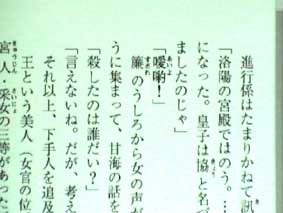 進行係はたまりかねて訊
「洛陽の宮殿ではのう。…
になった。皇子は協と名づ
ましたのじゃ」
「噯喲！」
簾のうしろから女の声が
うに集まって、甘海の話を
「殺したのは誰だい？」
「言えないね。だが、考え
それ以上、下手人を追及
王という美人（女官の位
宮人・采女の三等があった